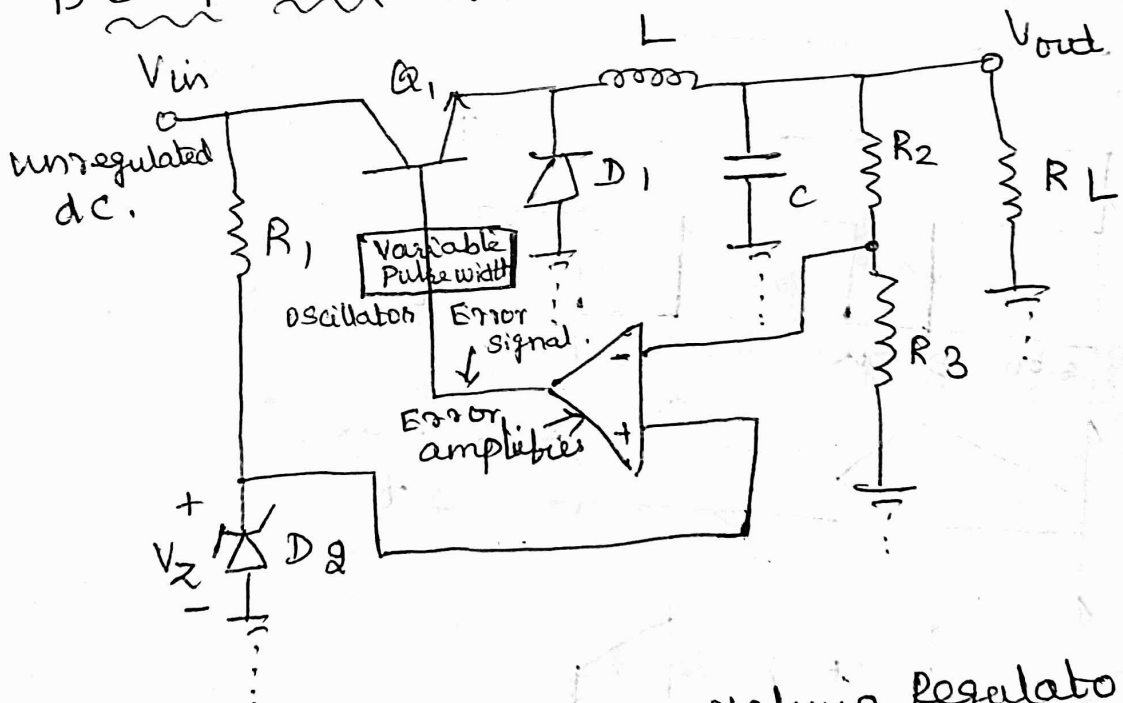 L
Vout
Vin
Q1
unregulated
dc.
R1
D1
C
R2
RL
Variable
Pulse width
Oscillator
Error
signal.
-
R3
Error
amplifier
+
+
Vz
D2
-
Regulato